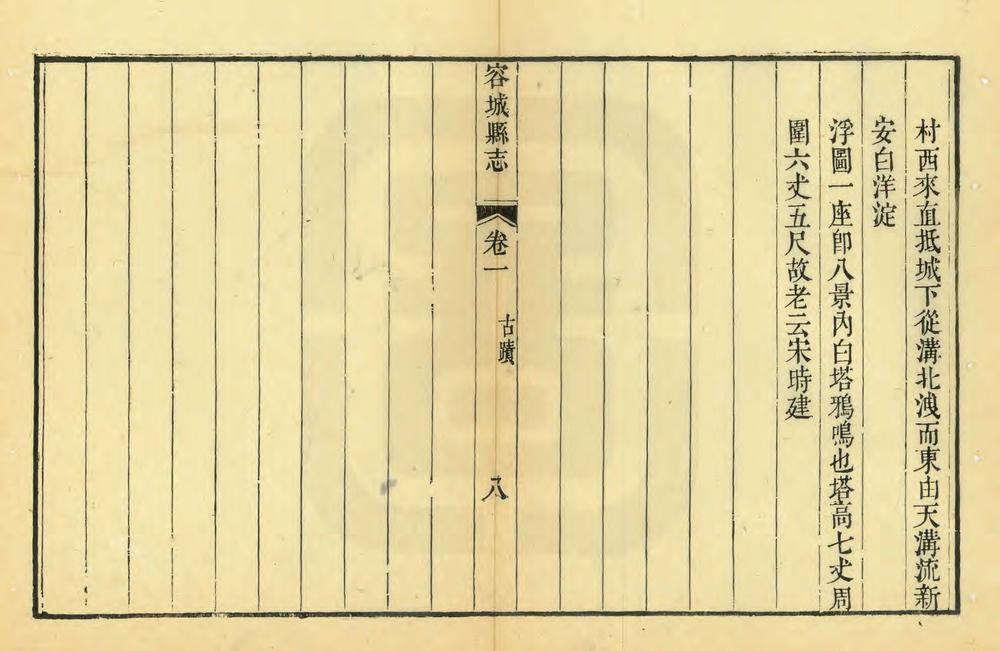 村西來直抵城下從溝北洩而東由天溝流新
安白洋淀
浮圖一座卽八景內白塔鴉鳴也塔高七丈周
圍六丈五尺故老云宋時建
容城縣志
卷一
古蹟
八